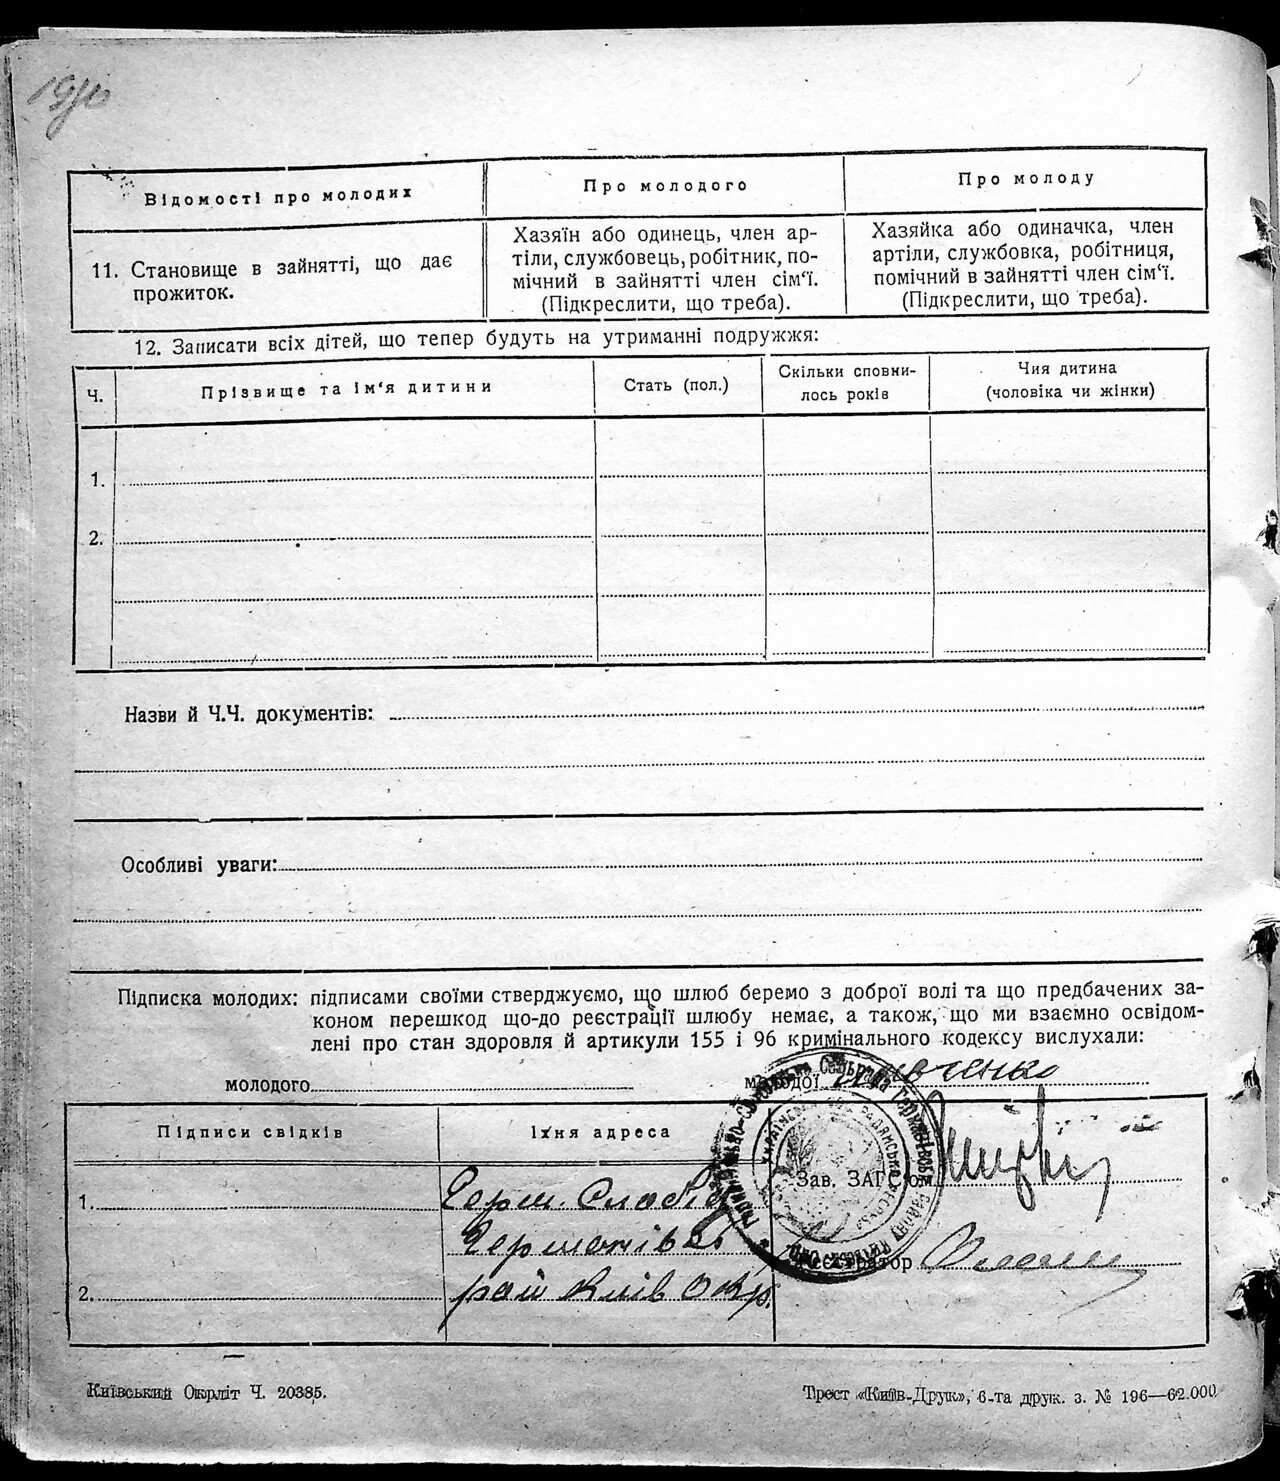 Відомості про молодих
Про молодого
Про молоду
11. Становище в зайнятті, що дає
прожиток.
Хазяїн або одинець, член ар-
тіли, службовець, робітник, по-
мічний в зайнятті член сім‘ї.
(Підкреслити, що треба).
Хазяйка або одиначка, член
артіли, службовка, робітниця,
помічний в зайнятті член сім‘ї.
(Підкреслити, що треба).
12. Записати всіх дітей, що тепер будуть на утриманні подружжя:
Ч.
Прізвище та ім‘я дитини
Стать (пол.)
Скільки сповни-
лось років
Чия дитина
(чоловіка чи жінки)
1.
2.
Назви й Ч.Ч. документів:
Особливі уваги:
Підписка молодих: підписами своїми стверджуємо, що шлюб беремо з доброї волі та що предбачених за-
коном перешкод що-до реєстрації шлюбу немає, а також, що ми взаємно освідом-
лені про стан здоровля й артикули 155 і 96 кримінального кодексу вислухали:
молодого
молодої
Підписи свідків
Їхня адреса
1.
Герм. Слобід
Германівсь
2.
рай Київ Окр.
Зав. ЗАГС‘ом
Реєстратор
Київський Окрліт Ч. 20385.
Трест «Київ-Друк», 6-та друк. з. № 196—62.000